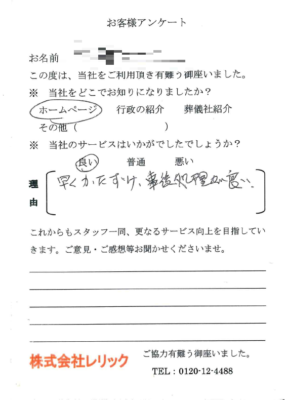 お客様アンケート
お名前
この度は、当社をご利用頂き有難う御座いました。
※ 当社をどこでお知りになりましたか？
ホームページ 行政の紹介 葬儀社紹介
その他（ ）
※ 当社のサービスはいかがでしたでしょうか？
良い 普通 悪い
理由 早くかたずけ、事後処理が良い。
これからもスタッフ一同、更なるサービス向上を目指してい
きます。ご意見・ご感想等お聞かせくださいませ。
株式会社レリック
ご協力有難う御座いました。
TEL：0120-12-4488